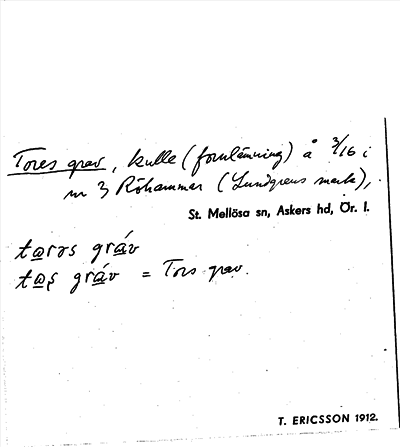 Tores grav, kulle (fornlämning) å 3/16 i
nr 3 Röhammar (Lundgrens mark),
St. Mellösa sn, Askers hd, Ör. l.
tạrɔs gráv
tạṣ gráv = Tors grav.
T. ERICSSON 1912.